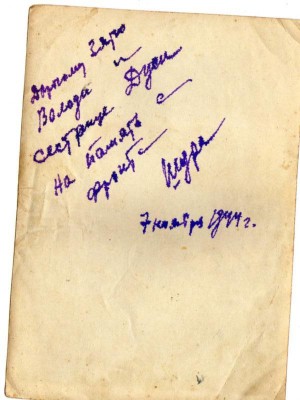 Дорогому Зятю
Володи и
сестрице Дуси
На память с
фронта
Шура
7 ноября 1944 г.